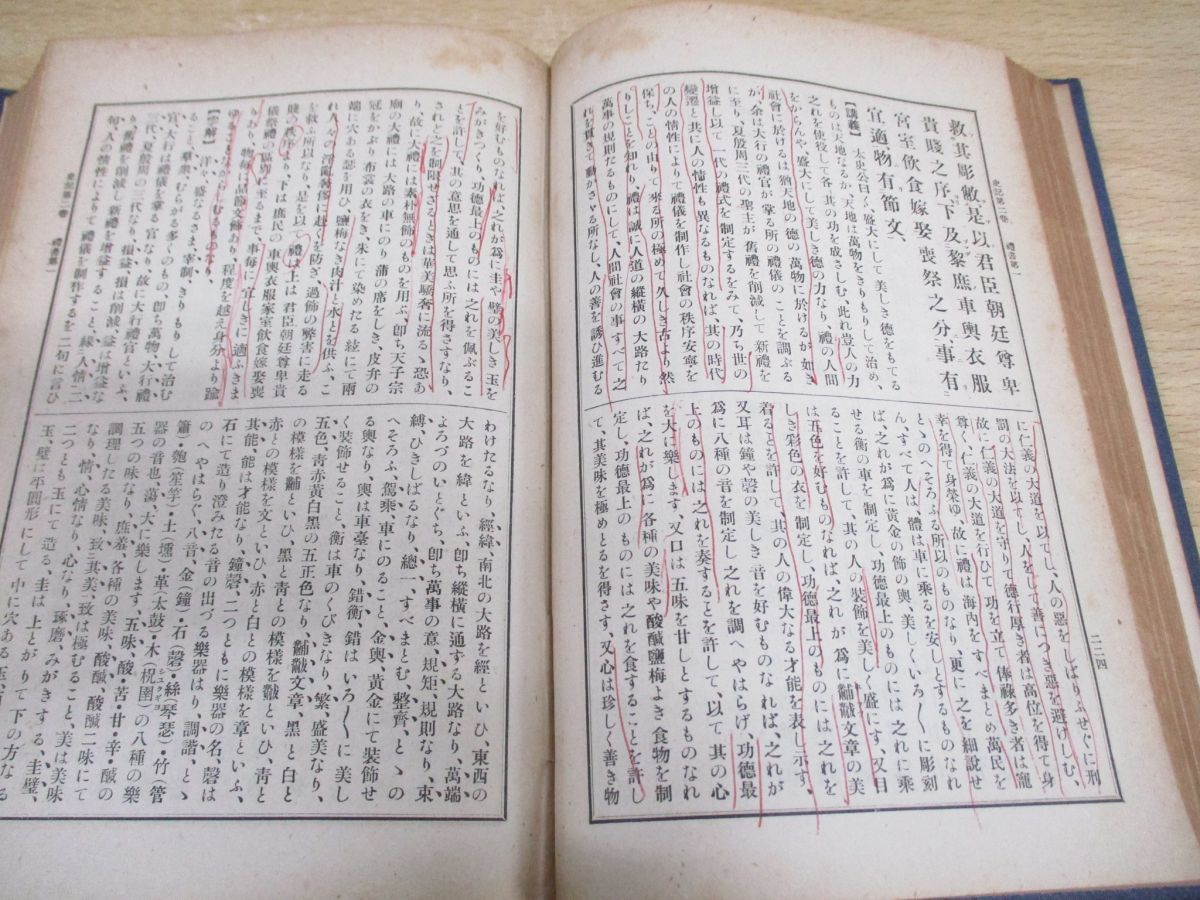 史記第二卷　禮書第一
二二四
救其彫敝是以君臣朝廷尊卑
貴賤之序下及黎庶車輿衣服
宮室飮食嫁娶喪祭之分事有
宜適物有節文、
【講義】　太史公曰く盛大にして美しき德をもてる
ものは天地なるか、天地は萬物をきりもりして治め、
之れを使役して各其の功を成さしむ、此れ豈人の力
ならんや、盛大にして美しき德の力なり、禮の人間
社會に於けるは猶天地の德の萬物に於けるが如き
か、余は大行の禮官が掌る所の禮儀のことを調ぶる
に至り、夏殷周三代の聖主が舊禮を削減して新禮を
增益し以て一代の禮式を制定するをみて、乃ち世の
變遷と共に人の情性も異なるものなれば、其の時代
の人の情性によりて禮儀を制作し社會の秩序安寧を
保ち、ことの由りて來る所の極めて久しき古より然
りしことを知れり、禮は誠に人道の縱橫の大路たり
萬事の規則たるものにして、人間社會の事すべて之
れを貫きて動かさゞる所なし、人の善を誘ひ進むる
に仁義の大道を以てし、人の惡をしばりふせぐに刑
罰の大法を以てし、人をして善につき惡を避けしむ、
故に仁義の大道を守りて德行厚き者は高位を得て身
尊く、仁義の大道を行ひて功を立て俸祿多き者は寵
幸を得て身榮ゆ、故に禮は海內をすべまとめ萬民を
とゝのへそろふる所以のものなり、更に之を細說せ
ん、すべて人は、體は車に乘るを安しとするものなれ
ば、之れが爲に黃金の飾の輿、美しくいろ〱に彫刻
せる衡の車を制定し、功德最上のものには之れに乘
ることを許して、其の人の裝飾を美しく盛にす、又目
は五色を好むものなれば、之れが爲に黼黻文章の美
しき彩色の衣を制定し、功德最上のものには之れを
着ることを許して、其の人の偉大なる才能を表し示す、
又耳は鐘や磬の美しき音を好むものなれば、之れが
爲に八種の音を制定し之れを調へやはらげ、功德最
上のものには之れを奏することを許して、以て其の心
を大に樂します、又口は五味を甘しとするものなれ
ば、之れが爲に各種の美味や酸鹹鹽梅よき食物を制
定し、功德最上のものには之れを食することを許し
て、其美味を極めとるを得さす、又心は珍しく善き物
史記第二卷　禮書第一
を好むものなれば、之れが爲に圭や璧の美しき玉を
みがきつくり、功德最上のものには之れを佩ぶるこ
とを許して、其の意思を通して思ふ所を得さすなり、
されど之を制限せざるときは華美驕奢に流るゝ恐あ
り、故に大禮には素朴無飾のものを用ふ、卽ち天子宗
廟の大禮には大路の車にのり蒲の席をしき、皮弁の
冠をかぶり、布裳の衣をき、朱にて染めたる絃にて兩
端に穴ある瑟を用ひ、鹽梅なき肉汁と水とを供ふ、こ
れ人々の淫亂奢侈に赴くを防ぎ、過飾の弊害に走る
を救ふ所以なり、是を以て禮は上は君臣朝廷尊卑貴
賤の秩序より、下は庶民の車輿衣服家室飮食嫁娶喪
儀祭禮の區別に至るまで、事每に宜しきに適ふきま
りあり、物每に品節文飾あり、程度を越え身分より踰
ゆることなからしむるものなり、
【字解】　洋々、盛なるさま、宰制、きりもりして治む
ること、羣衆、むらがる多くのもの、卽ち萬物、大行禮
官、大行は禮儀を掌る官なり、故に大行禮官といふ、
三代、夏殷周の三代なり、損益、損は削減、益は增益な
り、舊禮を削減し新禮を增益すること、緣人情二
句、人の情性によりて禮儀を制作するを二句に言ひ
わけたるなり、經緯、南北の大路を經といひ、東西の
大路を緯といふ、卽ち縱橫に通ずる大路なり、萬端
よろづのいとぐち、卽ち萬事の意、規矩、規則なり、束
縛、ひきしばるなり、總一、すべまとむ、整齊、とゝの
へそろふ、駕乘、車にのること、金輿、黃金にて裝飾せ
る輿なり、輿は車臺なり、錯衡、錯はいろ〱に美し
く裝飾せること、衡は車のくびきなり、繁、盛美なり、
五色、靑赤黃白黑の五正色なり、黼黻文章、黑と白と
の模樣を黼といひ、黑と靑との模樣を黻といひ、靑と
赤との模樣を文といひ、赤と白との模樣を章といふ、
其能、能は才能なり、鐘磬、二つともに樂器の名、磬は
石にて造り澄みたる音の出づる樂器なり、調諧、とゝ
のへやはらぐ、八音、金（鐘）・石（磬）・絲（琴瑟）・竹（管
簫）・匏（笙竽）・土（壎）・革（太鼓）・木（柷圉）の八種の樂
器の音也、蕩、大に樂します、五味、酸・苦・甘・辛・鹹の
五つの味なり、庶羞、各種の美味、酸鹹、酸鹹二味にて
調理したる美味、致其美、致は極むること、美は美味
なり、情、心情なり、心なり、琢磨、みがきする、圭璧、
二つとも玉にて造る、圭は上とがりて下の方なる
玉、璧は平圓形にして中に穴ある玉、